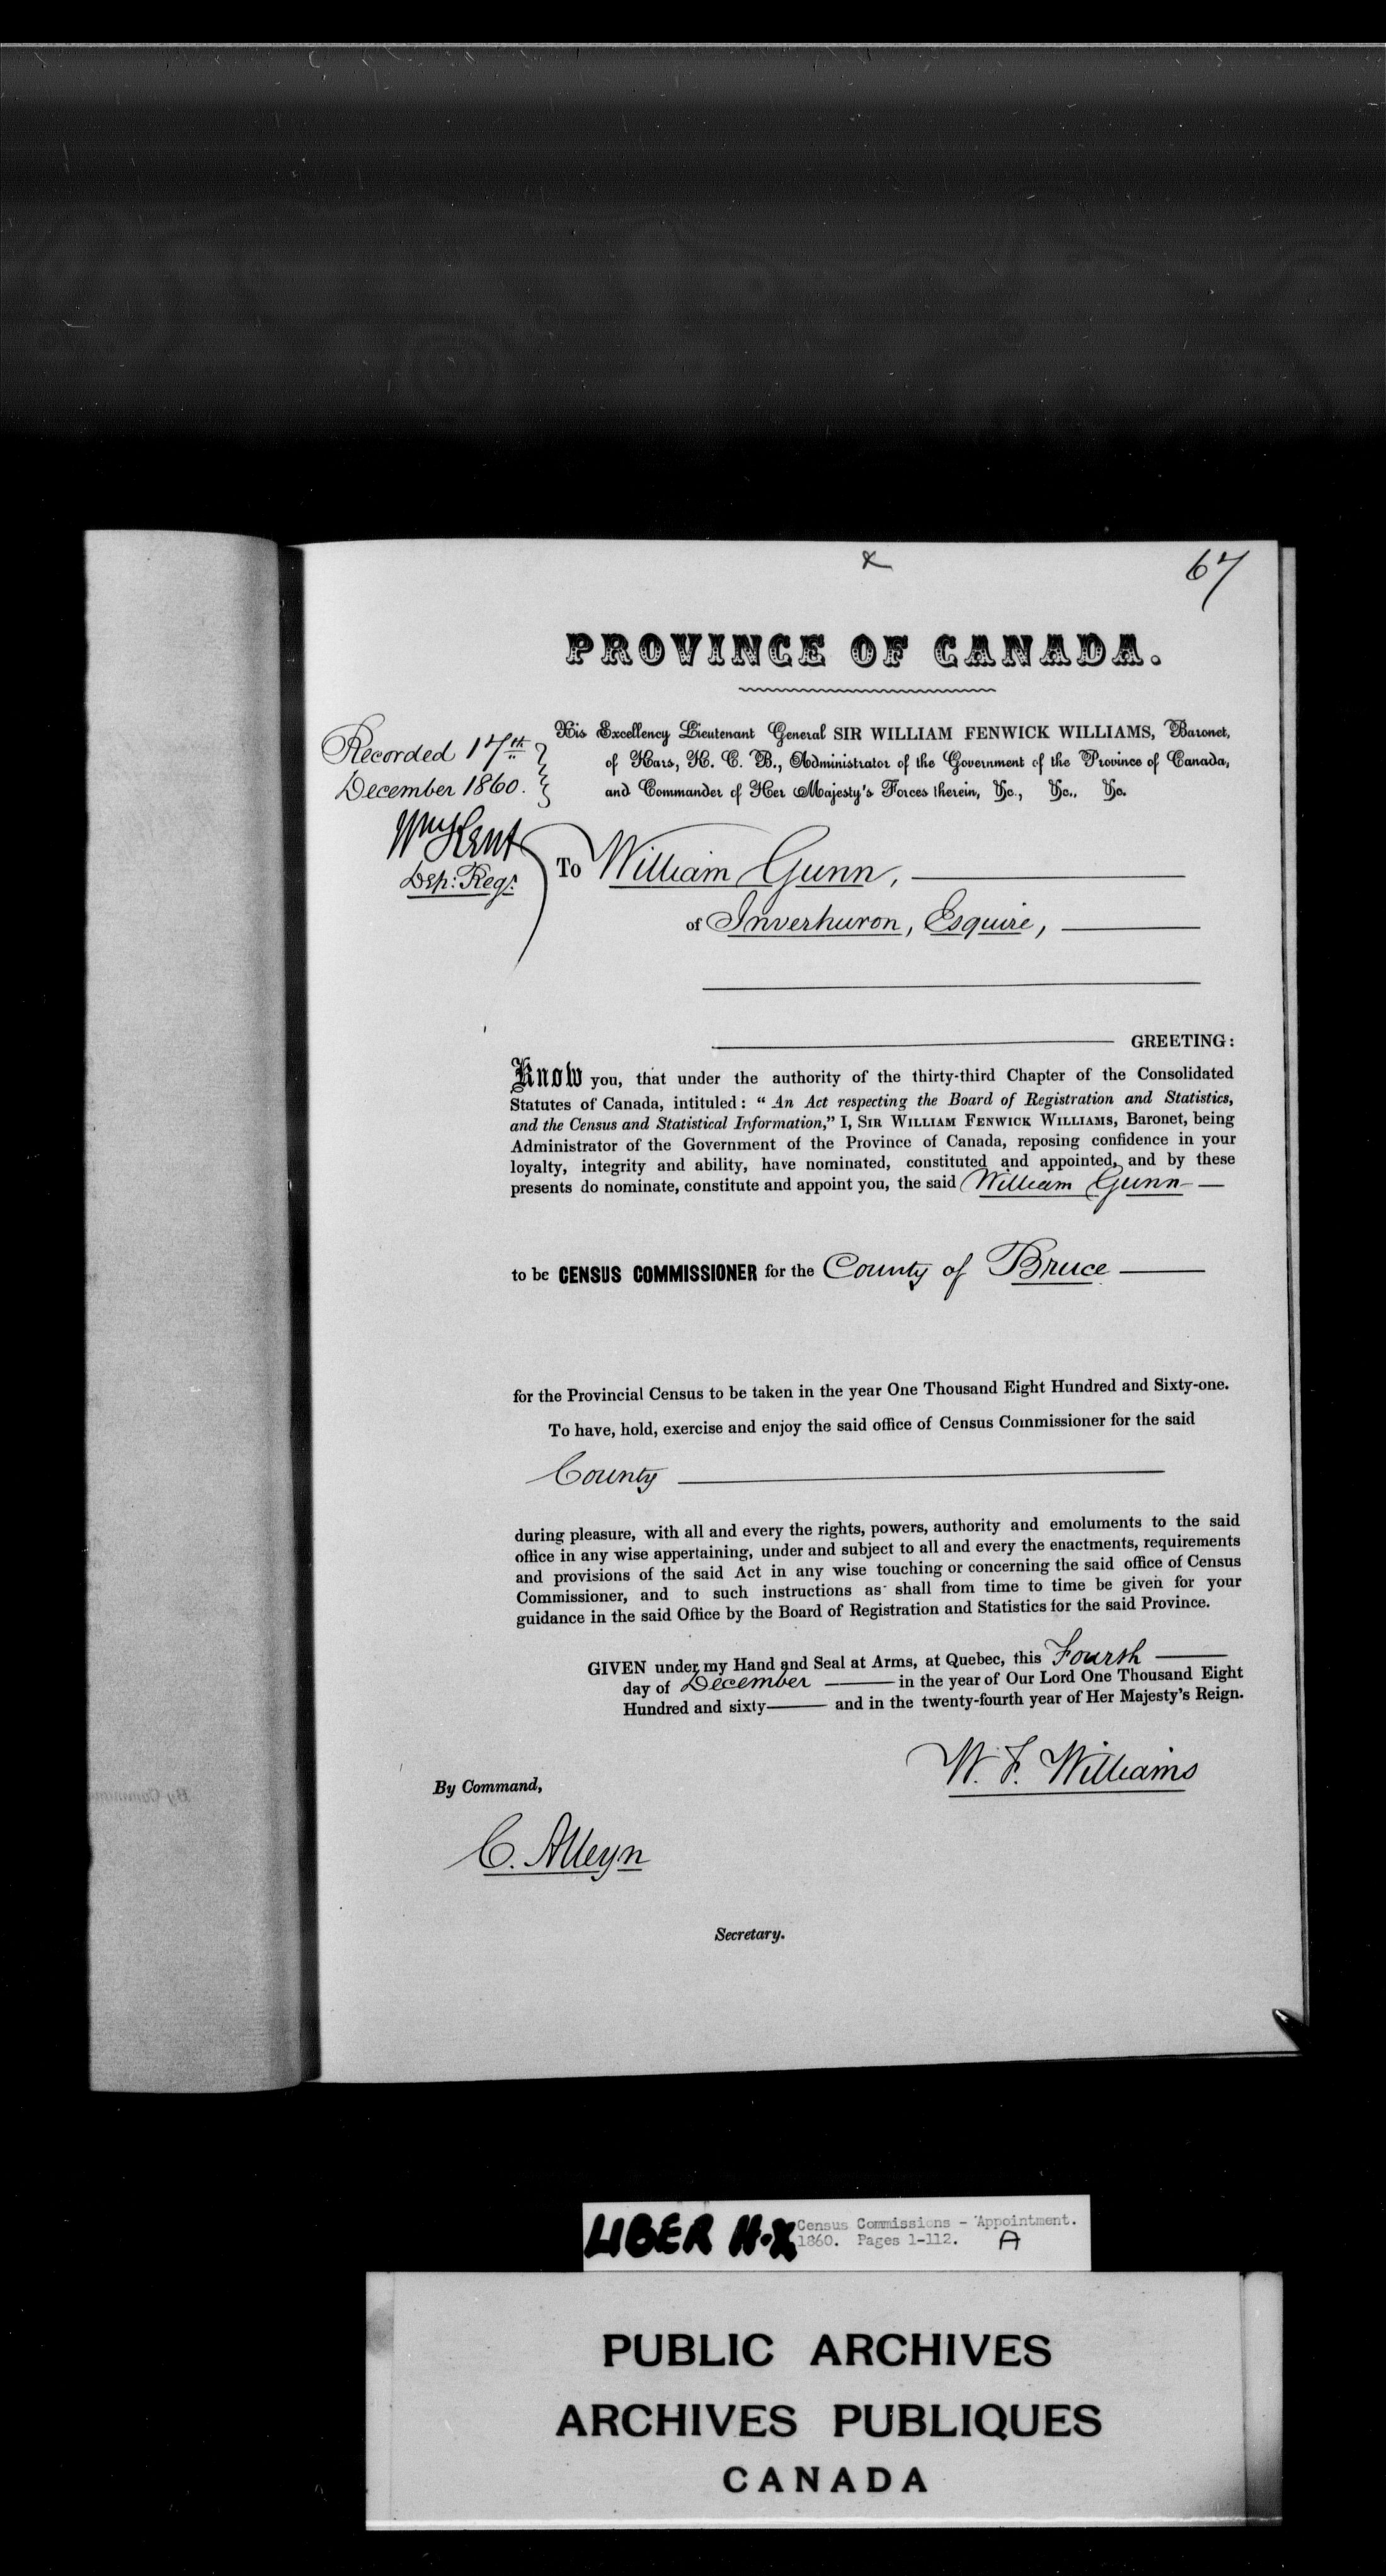 x
67
PROVINCE OF CANADA.
His Excellency Lieutenant General SIR WILLIAM FENWICK WILLIAMS, Baronet,
of Kars, K. C. B., Administrator of the Government of the Province of Canada,
and Commander of Her Majesty's Forces therein, &c., &c., &c.
Recorded 17th
December 1860.
Wm Kent
Dep: Regr
To William Gunn,
of Inverhuron, Esquire,
GREETING:
Know you, that under the authority of the thirty-third Chapter of the Consolidated
Statutes of Canada, intituled: "An Act respecting the Board of Registration and Statistics,
and the Census and Statistical Information," I, SIR WILLIAM FENWICK WILLIAMS, Baronet, being
Administrator of the Government of the Province of Canada, reposing confidence in your
loyalty, integrity and ability, have nominated, constituted and appointed, and by these
presents do nominate, constitute and appoint you, the said William Gunn
to be CENSUS COMMISSIONER for the County of Bruce
for the Provincial Census to be taken in the year One Thousand Eight Hundred and Sixty-one.
To have, hold, exercise and enjoy the said office of Census Commissioner for the said
County
during pleasure, with all and every the rights, powers, authority and emoluments to the said
office in any wise appertaining, under and subject to all and every the enactments, requirements
and provisions of the said Act in any wise touching or concerning the said office of Census
Commissioner, and to such instructions as shall from time to time be given for your
guidance in the said Office by the Board of Registration and Statistics for the said Province.
GIVEN under my Hand and Seal at Arms, at Quebec, this Fourth
day of December in the year of Our Lord One Thousand Eight
Hundred and sixty and in the twenty-fourth year of Her Majesty's Reign.
W. F. Williams
By Command,
C. Alleyn
Secretary.
LIBER H-X Census Commissions - Appointment.
1860. Pages 1-112. A
PUBLIC ARCHIVES
ARCHIVES PUBLIQUES
CANADA